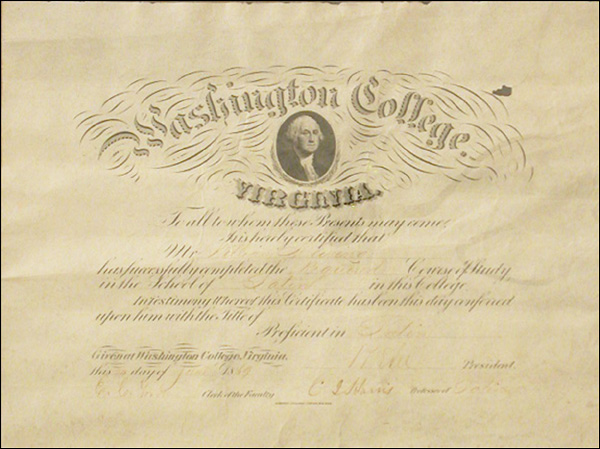 Washington College.
VIRGINIA.
To all to whom these Presents may come;
It is hereby certified that
Mr
has successfully completed the Required Course of Study
in the School of Latin in this College.
In testimony whereof this Certificate has been this day conferred
upon him with the Title of
Proficient in Latin
Given at Washington College, Virginia,
this day of June 1869 President.
Clerk of the Faculty C J Harris Professor of Latin